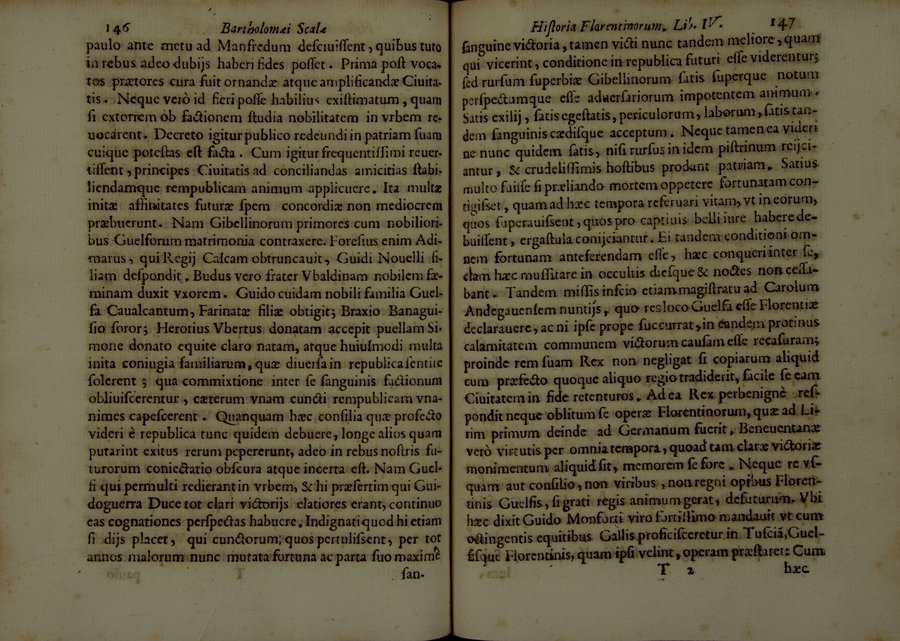 146 Bartholomæi Scalæ
paulo ante metu ad Manfredum desciuissent, quibus tuto
in rebus adeo dubijs haberi fides posset. Prima post voca-
tos prætores cura fuit ornandæ atque amplificandæ Ciuita-
tis. Neque verò id fieri posse habilius existimatum, quam
si extorrem ob factionem studia nobilitatem in vrbem re-
uocarent. Decreto igitur publico redeundi in patriam suam
cuique potestas est facta. Cum igitur frequentissimi reuer-
tissent, principes Ciuitatis ad conciliandas amicitias stabi-
liendamque rempublicam animum applicuere. Ita multæ
initæ affinitates futuræ spem concordiæ non mediocrem
præbuerunt. Nam Gibellinorum primores cum nobiliori-
bus Guelforum matrimonia contraxere. Foresius enim Adi-
marus, qui Regij Cascam obtruncauit, Guidi Nouelli fi-
liam despondit. Budus vero frater Vbaldinam nobilem fæ-
minam duxit vxorem. Guido cuidam nobili familia Guel-
fa Caualcantum, Farinatæ filiæ obtigit; Braxio Banagui-
sio soror; Herotius Vbertus donatam accepit puellam Si-
mone donato equite claro natam, atque huiusmodi multa
inita coniugia familiarum, quæ diuersa in republica sentire
solerent; qua commixtione inter se sanguinis factionum
obliuiscerentur, cæterum vnam cuncti rempublicam vna-
nimes capescerent. Quanquam hæc consilia quæ profecto
videri è republica tunc quidem debuere, longe alios quam
putarint exitus rerum pepererunt, adeo in rebus nostris fu-
turorum coniectatio obscura atque incerta est. Nam Guel-
fi qui permulti redierant in vrbem, & hi præsertim qui Gui-
doguerra Duce tot clari victorijs elatiores erant, continuo
eas cognationes perspectas habuere. Indignati quod hi etiam
si dijs placet, qui cunctorum; quos pertulissent, per tot
annos malorum nunc mutata fortuna ac parta suo maximè
san-
Historia Florentinorum. Lib. IV. 147
sanguine victoria, tamen victi nunc tandem meliore, quam
qui vicerint, conditione in republica futuri esse viderentur;
sed rursum superbiæ Gibellinorum satis superque notum
perspectamque esse aduersariorum impotentem animum.
Satis exilij, satis egestatis, periculorum, laborum, satis tan-
dem sanguinis cædisque acceptum. Neque tamen ea videri
ne nunc quidem satis, nisi rursus in idem pistrinum reijci-
antur, & crudelissimis hostibus prodant patriam. Satius
multo fuisse si præliando mortem oppetere fortunatam con-
tigisset, quam ad hæc tempora referuari vitam, vt in eorum,
quos superauissent, quos pro captiuis belli iure habere de-
buissent, ergastula conijciantur. Ei tandem conditioni om-
nem fortunam anteferendam esse, hæc conqueri inter se,
clam hæc mussitare in occultis diesque & noctes non cessa-
bant. Tandem missis inscio etiam magistratu ad Carolum
Andegauensem nuntijs, quo res loco Guelfa esse Florentiæ
declarauere, ac ni ipse prope succurrat, in eandem protinus
calamitatem communem victorum causam esse recasuram;
proinde rem suam Rex non negligat si copiarum aliquid
cum præfecto quoque aliquo regio tradiderit, facile se eam
Ciuitatem in fide retenturos. Ad ea Rex perbenignè res-
pondit neque oblitum se operæ Florentinorum, quæ ad Li-
rim primum deinde ad Germanum fuerit, Beneuentanæ
verò virtutis per omnia tempora, quoad tam claræ victoriæ
monimentum aliquid sit, memorem se fore. Neque re vs-
quam aut consilio, non viribus, non regni opibus Floren-
tinis Guelfis, si grati regis animum gerat, defuturum. Vbi
hæc dixit Guido Monforti viro fortissimo mandauit vt cum
octingentis equitibus Gallis proficisceretur in Tusciã, Guel-
fisque Florentinis, quam ipsi velint, operam præstaret: Cum
T 2 hæc